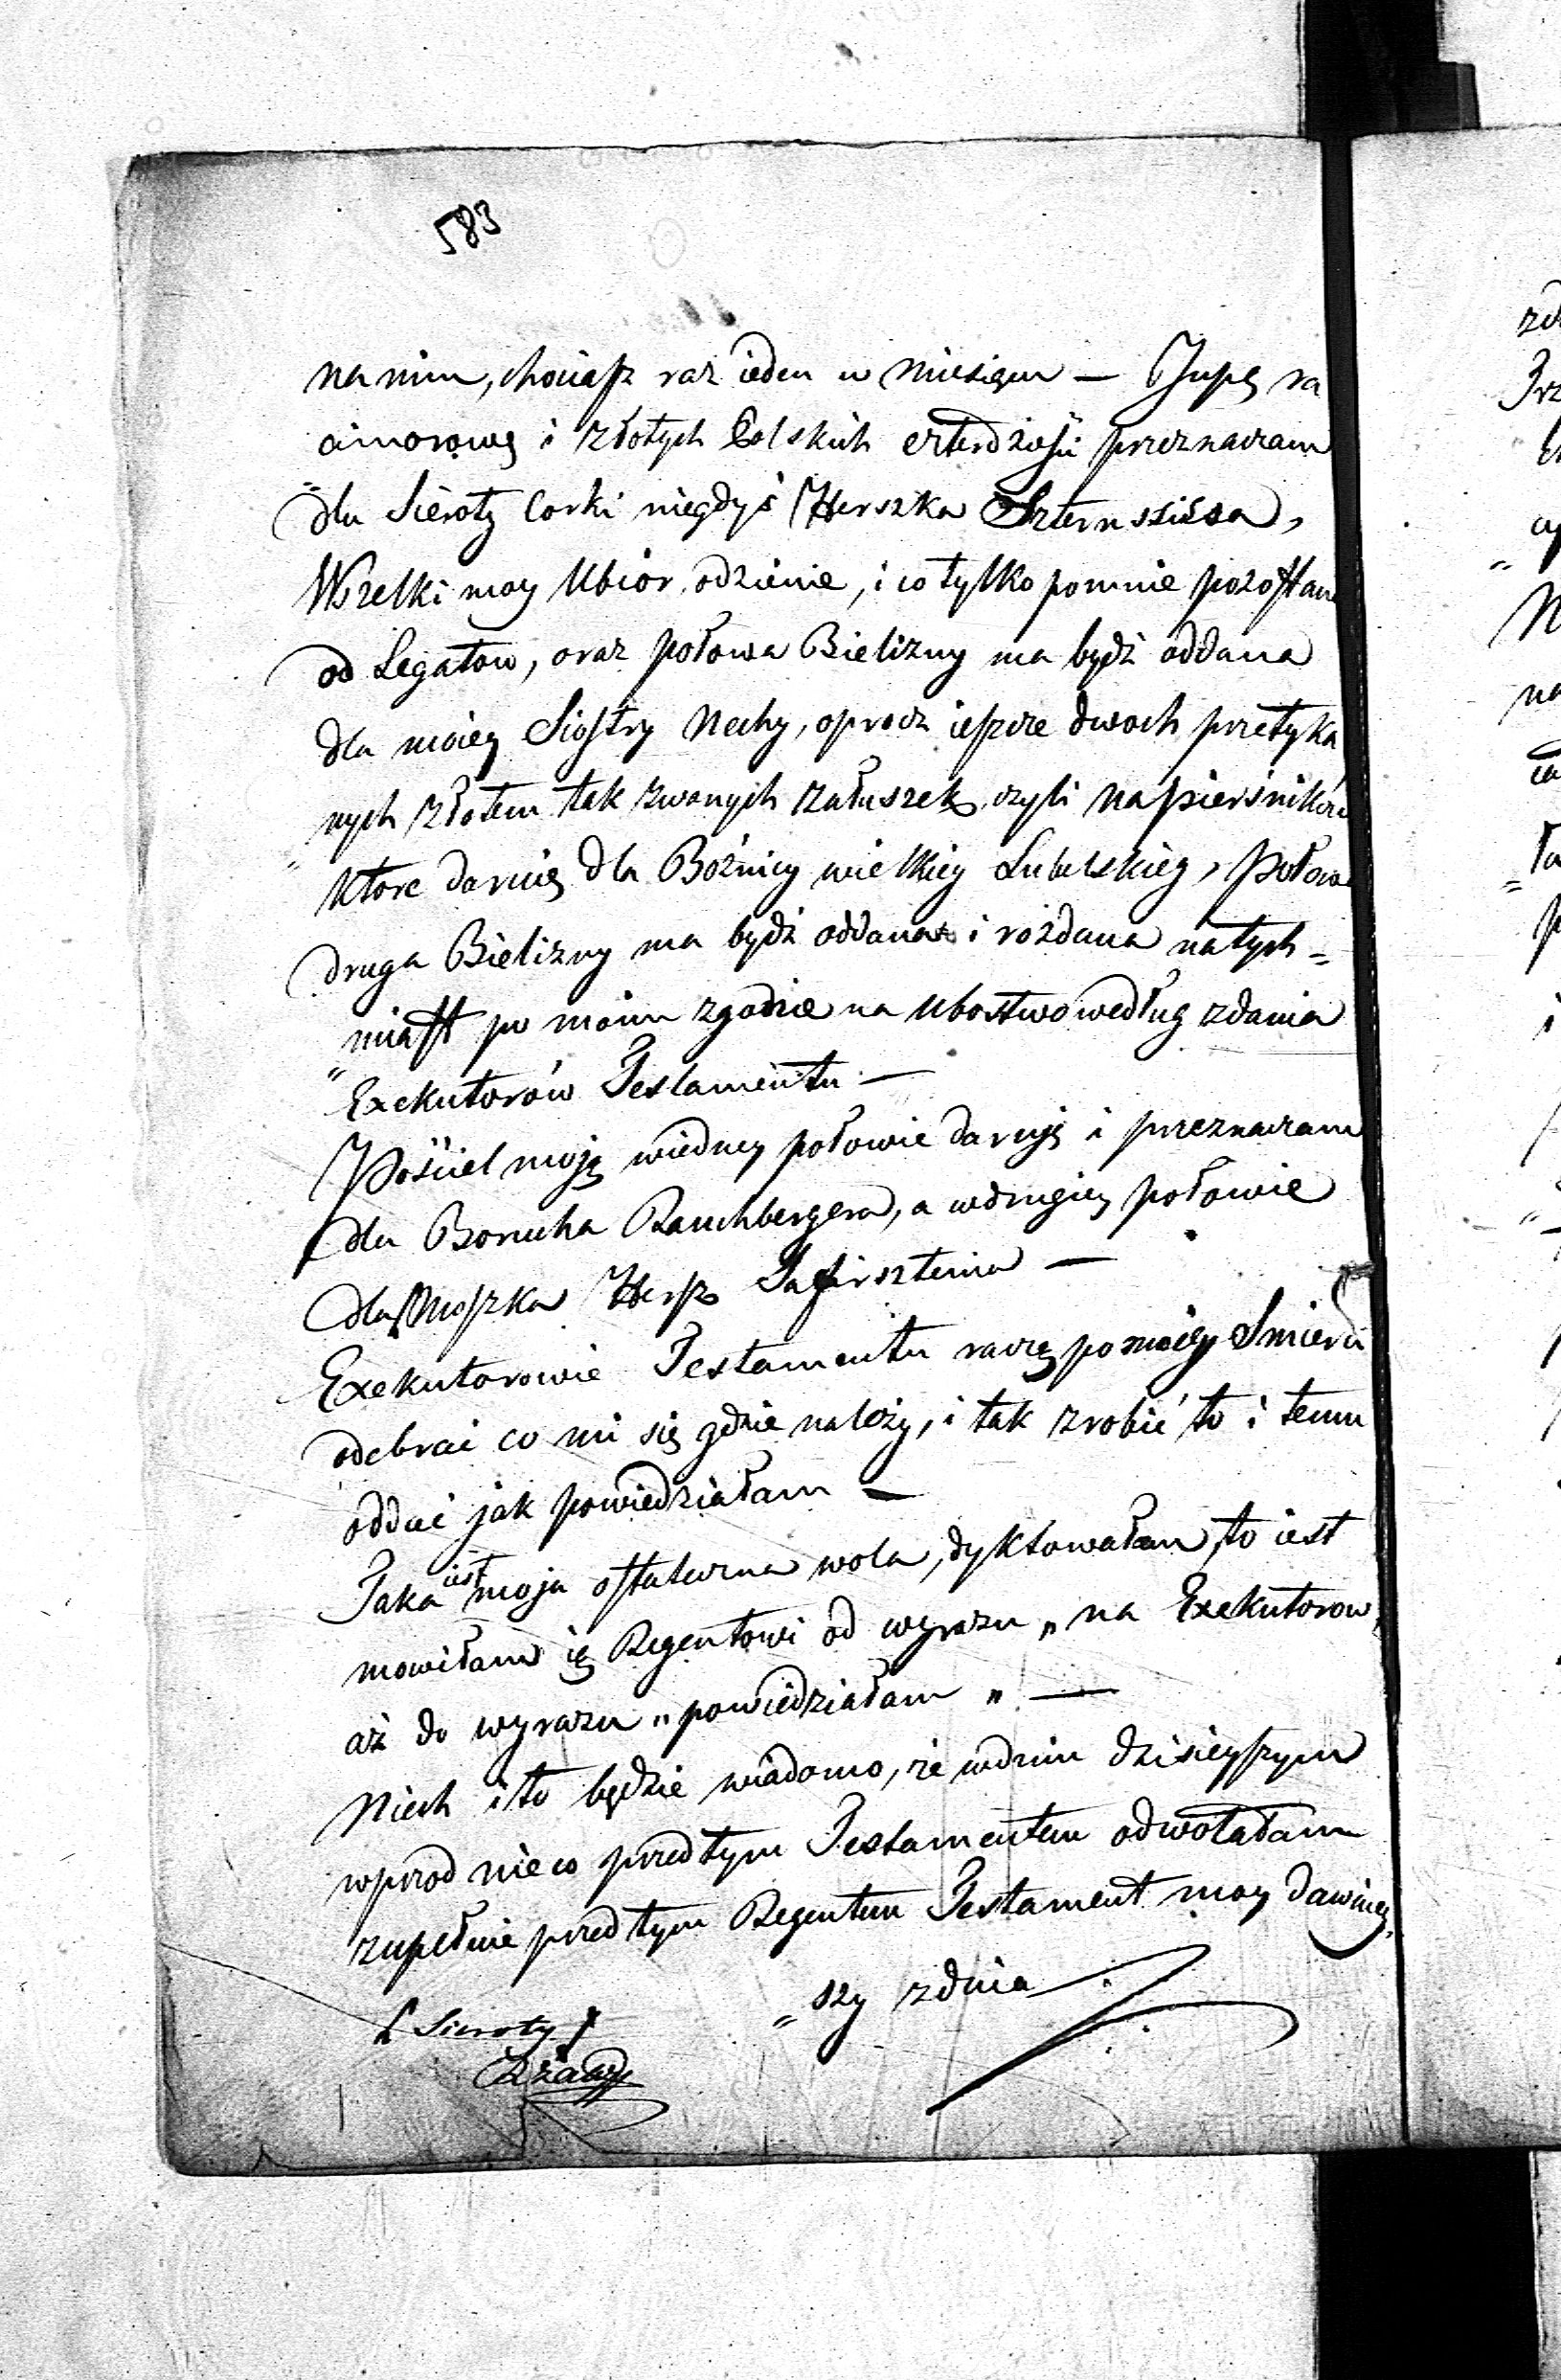 583
na nim, chociasz raz ieden w Miesiącu — Jupę ra
cimorową i złotych Polskich czterdzieści przeznaczam
"dla Sieroty Corki niegdyś Herszka Szternszisa,
Wszelki moy Ubior, odzienie, i co tylko pomnie pozostanie
od Legatow, oraz połowa Bielizny ma bydź oddana
dla moiey Siostry Nechy, oprocz ieszcze dwoch przetyka
nych złotem tak zwanych załuszek, czyli napierśników
"ktore daruię dla Bóźnicy wielkiey Lubelskiey, Połowa
druga Bielizny ma bydź oddana i rozdana natych=
miast po moim zgodzie na Ubostwo według zdania
"Exekutorów Testamentu —
Pościel moję wiedney połowie daruję i przeznaczam
dla Borucha Rauchbergera, a wdrugiey połowie
dla Moszka Hersz Safirszteina —
Exekutorowie Testamentu raczą po moiey Smierci
odebrać co mi się gdzie należy, i tak zrobić to i temu
oddać jak powiedziałam —
Taka iest moja ostateczna wola, dyktowałam, to iest
mowiłam ię Regentowi od wyrazu „na Exekutorow
aż do wyrazu „powiedziałam" —
Niech i to będzie wiadomo, że wdniu dzisieyszym
wprzod nieco przed tym Testamentem odwołałam
zupełnie przed tym Regentem Testament moy dawniey„
"szy zdnia
Sieroty